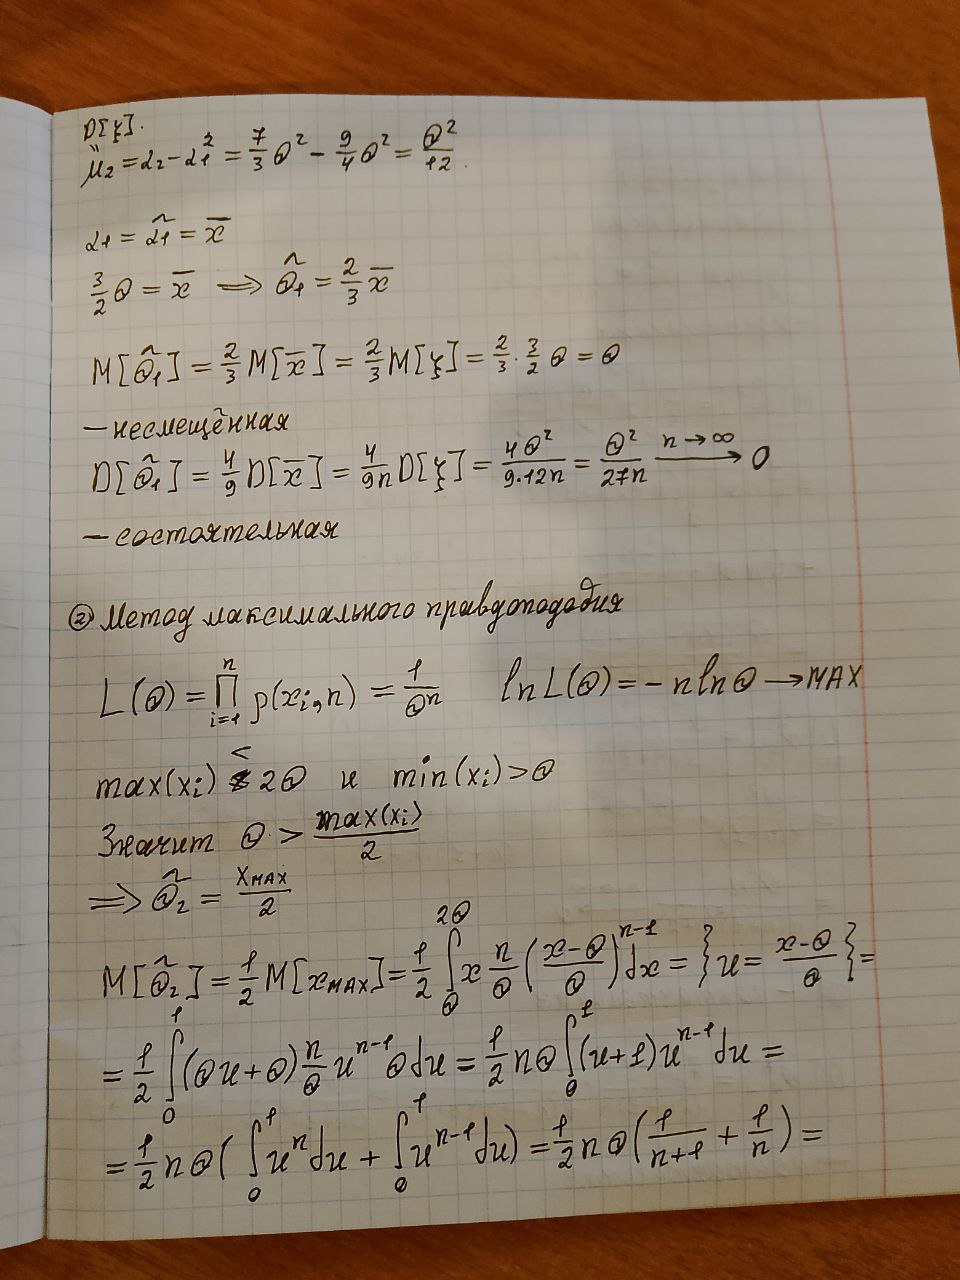 D[ξ].
μ₂ = α₂ - α₁² = 7/3 θ² - 9/4 θ² = θ²/12.
α₁ = α̃₁ = x̄
3/2 θ = x̄ ⟹ θ̃₁ = 2/3 x̄
M[θ̃₁] = 2/3 M[x̄] = 2/3 M[ξ] = 2/3 · 3/2 θ = θ
– несмещённая
D[θ̃₁] = 4/9 D[x̄] = 4/9n D[ξ] = 4θ²/9·12n = θ²/27n n→∞ ⟶ 0
– состоятельная
② Метод максимального правдоподобия
L(θ) = ∏ᵢ₌₁ⁿ p(xᵢ, n) = 1/θⁿ ln L(θ) = - n ln θ → MAX
max(xᵢ) < 2θ и min(xᵢ) > θ
Значит θ > max(xᵢ)/2
⟹ θ̃₂ = xMAX/2
M[θ̃₂] = 1/2 M[xMAX] = 1/2 ∫_θ^2θ x n/θ ((x-θ)/θ)^(n-1) dx = {u = (x-θ)/θ} =
= 1/2 ∫₀¹ (θu + θ) n/θ u^(n-1) θ du = 1/2 nθ ∫₀¹ (u+1) u^(n-1) du =
= 1/2 nθ ( ∫₀¹ uⁿ du + ∫₀¹ u^(n-1) du) = 1/2 nθ (1/(n+1) + 1/n) =